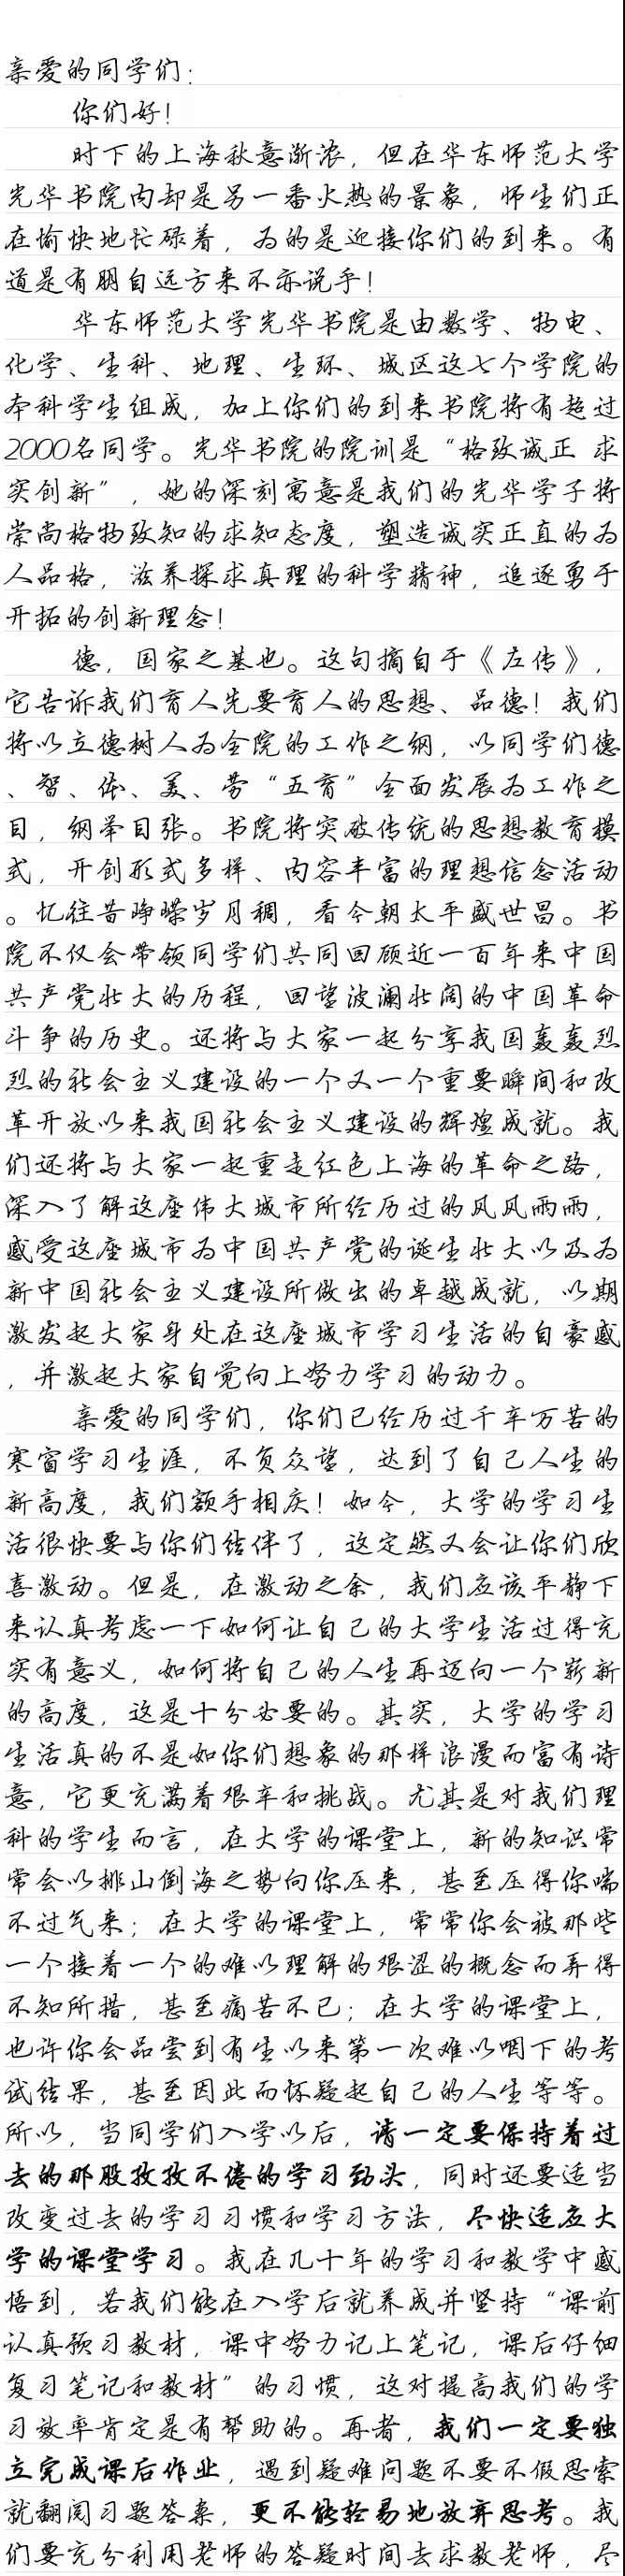 亲爱的同学们：
你们好！
时下的上海秋意渐浓，但在华东师范大学
光华书院内却是另一番火热的景象，师生们正
在愉快地忙碌着，为的是迎接你们的到来。有
道是有朋自远方来不亦说乎！
华东师范大学光华书院是由数学、物电、
化学、生科、地理、生环、城区这七个学院的
本科学生组成，加上你们的到来书院将有超过
2000名同学。光华书院的院训是“格致诚正 求
实创新”，她的深刻寓意是我们的光华学子将
崇尚格物致知的求知态度，塑造诚实正直的为
人品格，滋养探求真理的科学精神，追逐勇于
开拓的创新理念！
德，国家之基也。这句摘自于《左传》，
它告诉我们育人先要育人的思想、品德！我们
将以立德树人为全院的工作之纲，以同学们德
、智、体、美、劳“五育”全面发展为工作之
目，纲举目张。书院将突破传统的思想教育模
式，开创形式多样、内容丰富的理想信念活动
。忆往昔峥嵘岁月稠，看今朝太平盛世昌。书
院不仅会带领同学们共同回顾近一百年来中国
共产党壮大的历程，回望波澜壮阔的中国革命
斗争的历史。还将与大家一起分享我国轰轰烈
烈的社会主义建设的一个又一个重要瞬间和改
革开放以来我国社会主义建设的辉煌成就。我
们还将与大家一起重走红色上海的革命之路，
深入了解这座伟大城市所经历过的风风雨雨，
感受这座城市为中国共产党的诞生壮大以及为
新中国社会主义建设所做出的卓越成就，以期
激发起大家身处在这座城市学习生活的自豪感
，并激起大家自觉向上努力学习的动力。
亲爱的同学们，你们已经历过千辛万苦的
寒窗学习生涯，不负众望，达到了自己人生的
新高度，我们额手相庆！如今，大学的学习生
活很快要与你们结伴了，这定然又会让你们欣
喜激动。但是，在激动之余，我们应该平静下
来认真考虑一下如何让自己的大学生活过得充
实有意义，如何将自己的人生再迈向一个崭新
的高度，这是十分必要的。其实，大学的学习
生活真的不是如你们想象的那样浪漫而富有诗
意，它更充满着艰辛和挑战。尤其是对我们理
科的学生而言，在大学的课堂上，新的知识常
常会以排山倒海之势向你压来，甚至压得你喘
不过气来；在大学的课堂上，常常你会被那些
一个接着一个的难以理解的艰涩的概念而弄得
不知所措，甚至痛苦不已；在大学的课堂上，
也许你会品尝到有生以来第一次难以咽下的考
试结果，甚至因此而怀疑起自己的人生等等。
所以，当同学们入学以后，请一定要保持着过
去的那股孜孜不倦的学习劲头，同时还要适当
改变过去的学习习惯和学习方法，尽快适应大
学的课堂学习。我在几十年的学习和教学中感
悟到，若我们能在入学后就养成并坚持“课前
认真预习教材，课中努力记上笔记，课后仔细
复习笔记和教材”的习惯，这对提高我们的学
习效率肯定是有帮助的。再者，我们一定要独
立完成课后作业，遇到疑难问题不要不假思索
就翻阅习题答案，更不能轻易地放弃思考。我
们要充分利用老师的答疑时间去求教老师，尽